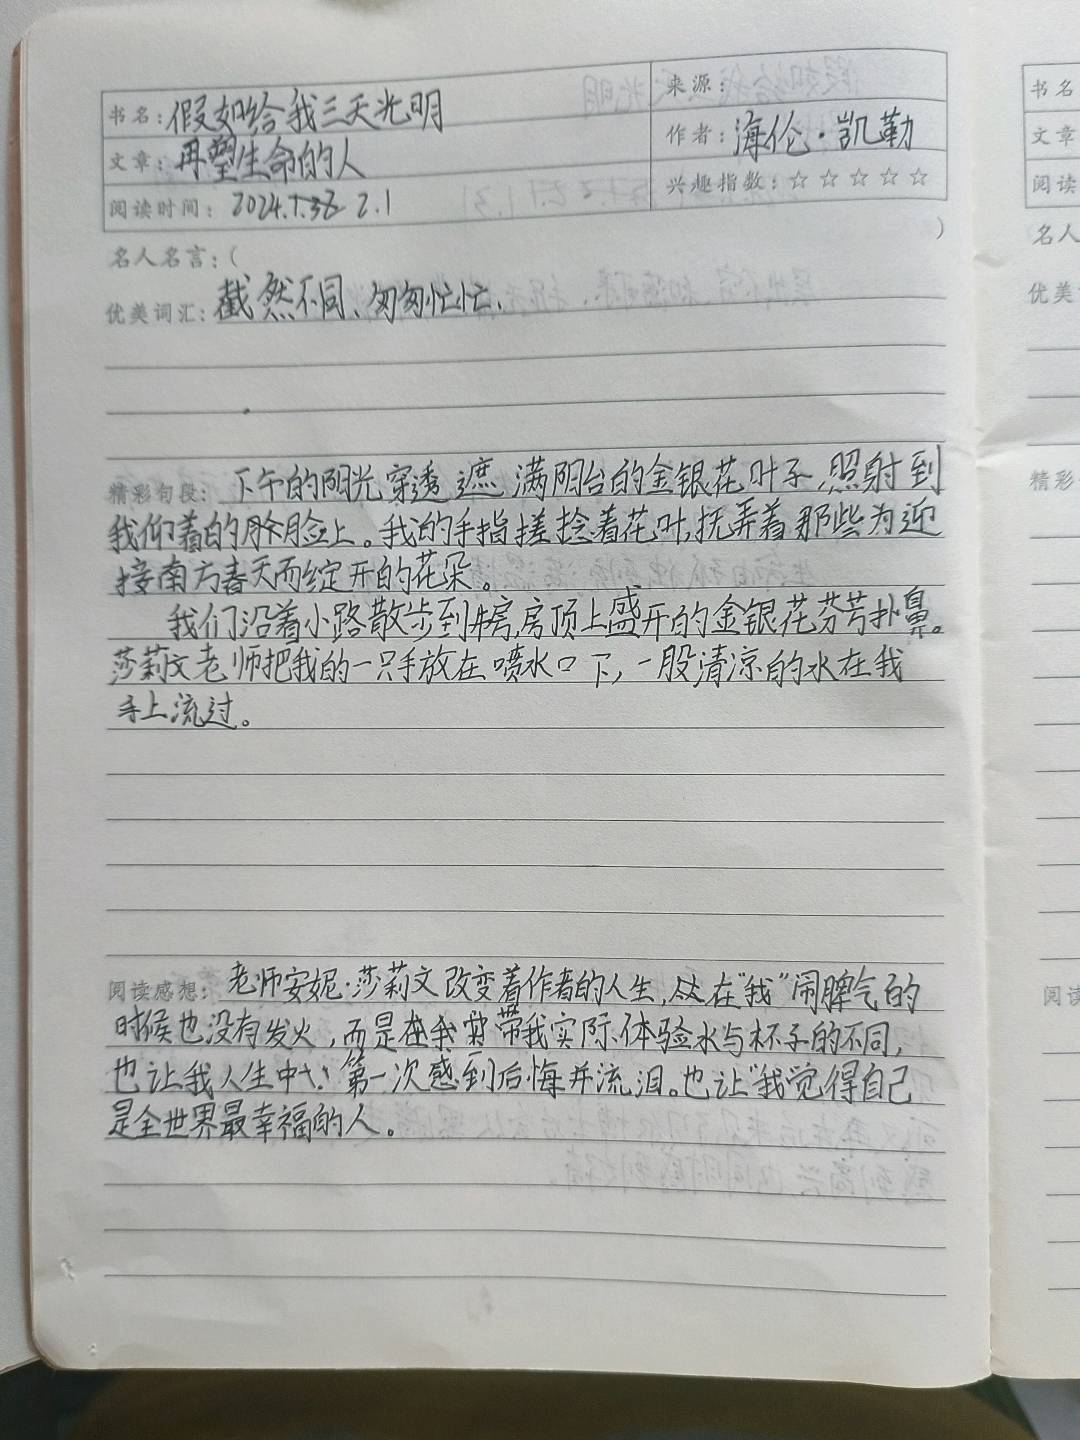 书名：假如给我三天光明
来源：
文章：再塑生命的人
作者：海伦·凯勒
阅读时间：2024.1.30 2.1
兴趣指数：☆☆☆☆☆
名人名言：（ ）
优美词汇：截然不同、匆匆忙忙、
精彩句段：下午的阳光穿透遮满阳台的金银花叶子，照射到
我仰着的脸上。我的手指搓捻着花叶，抚弄着那些为迎
接南方春天而绽开的花朵。
我们沿着小路散步到井房，房顶上盛开的金银花芬芳扑鼻。
莎莉文老师把我的一只手放在喷水口下，一股清凉的水在我
手上流过。
阅读感想：老师安妮·莎莉文改变着作者的人生，在“我”闹脾气的
时候也没有发火，而是带我实际体验水与杯子的不同，
也让我人生中第一次感到后悔并流泪。也让“我觉得自己
是全世界最幸福的人。
书名
文章
阅读
名人
优美
精彩
阅读